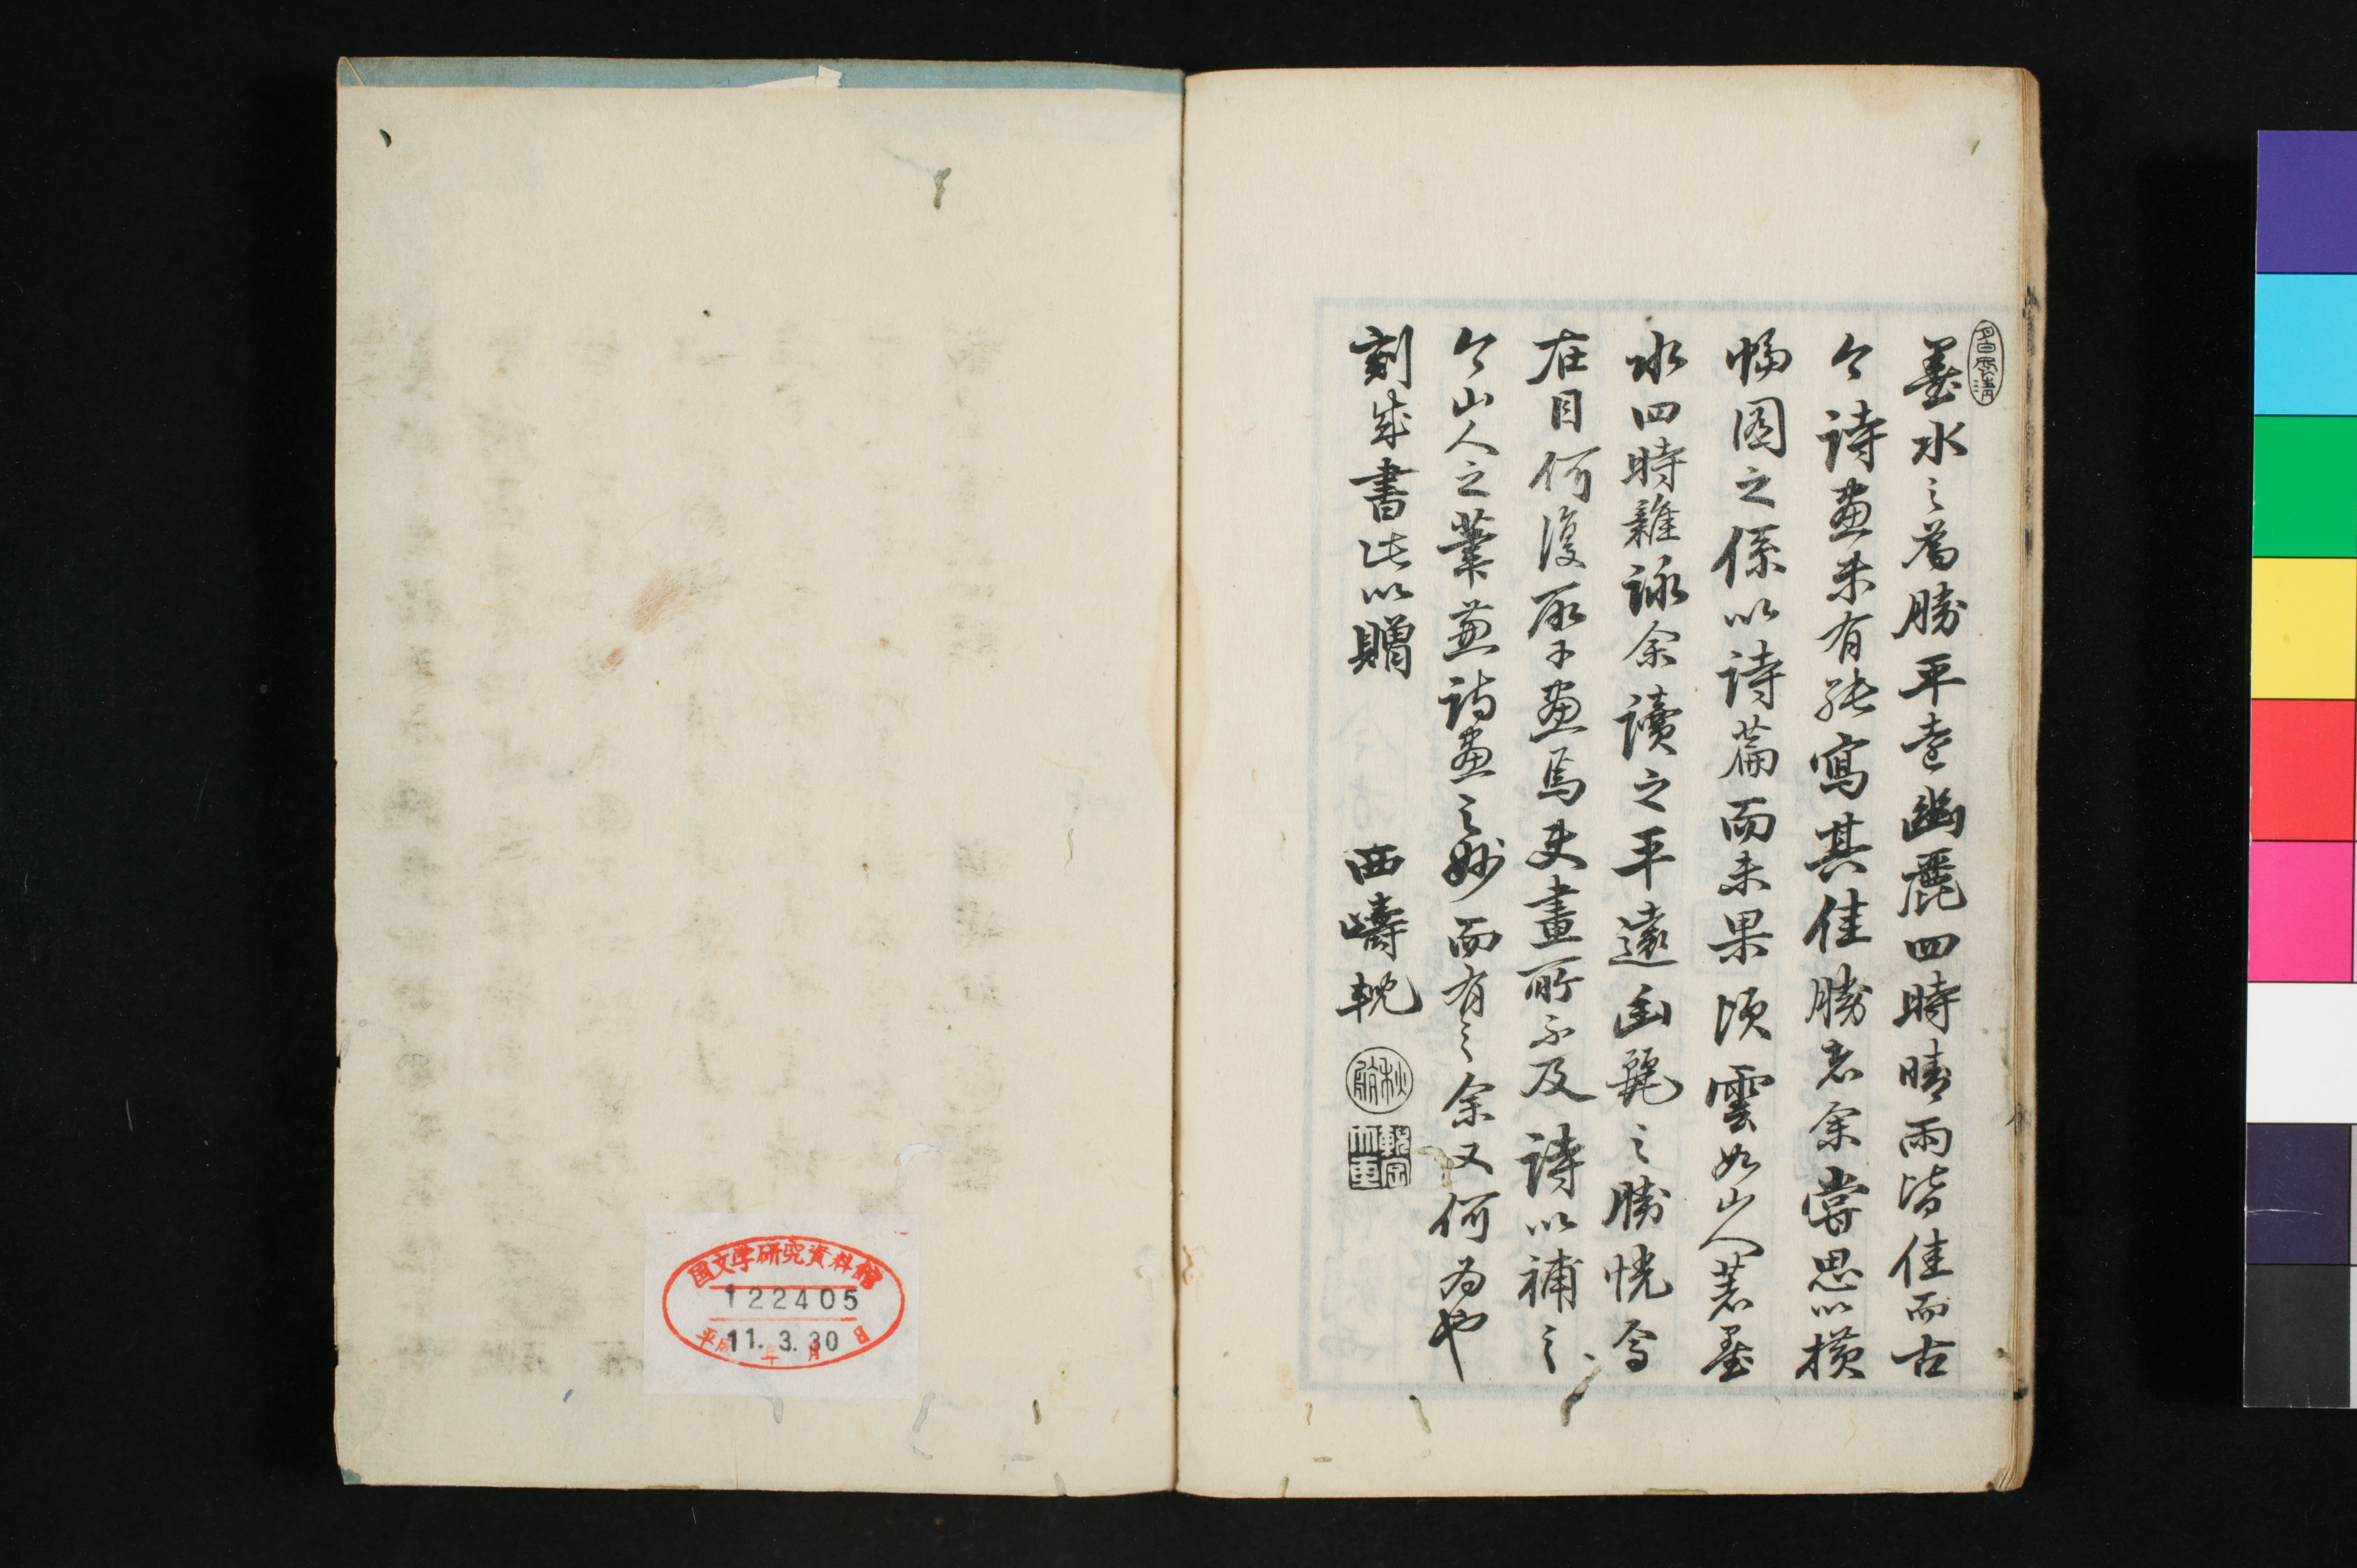 墨水之為勝平遠幽麗四時晴雨皆佳而古
今詩畫未有能寫其佳勝者余嘗思以横
幅圖之係以詩篇而未果頃雲如山人著墨
水四時雜詠余讀之平遠幽麗之勝恍焉
在目何復取于畫焉夫畫所不及詩以補之
今山人之業兼詩畫之妙而有之余又何為也
刻成書此以贈
西疇
国文学研究資料館
122405
平成11年3.月30日